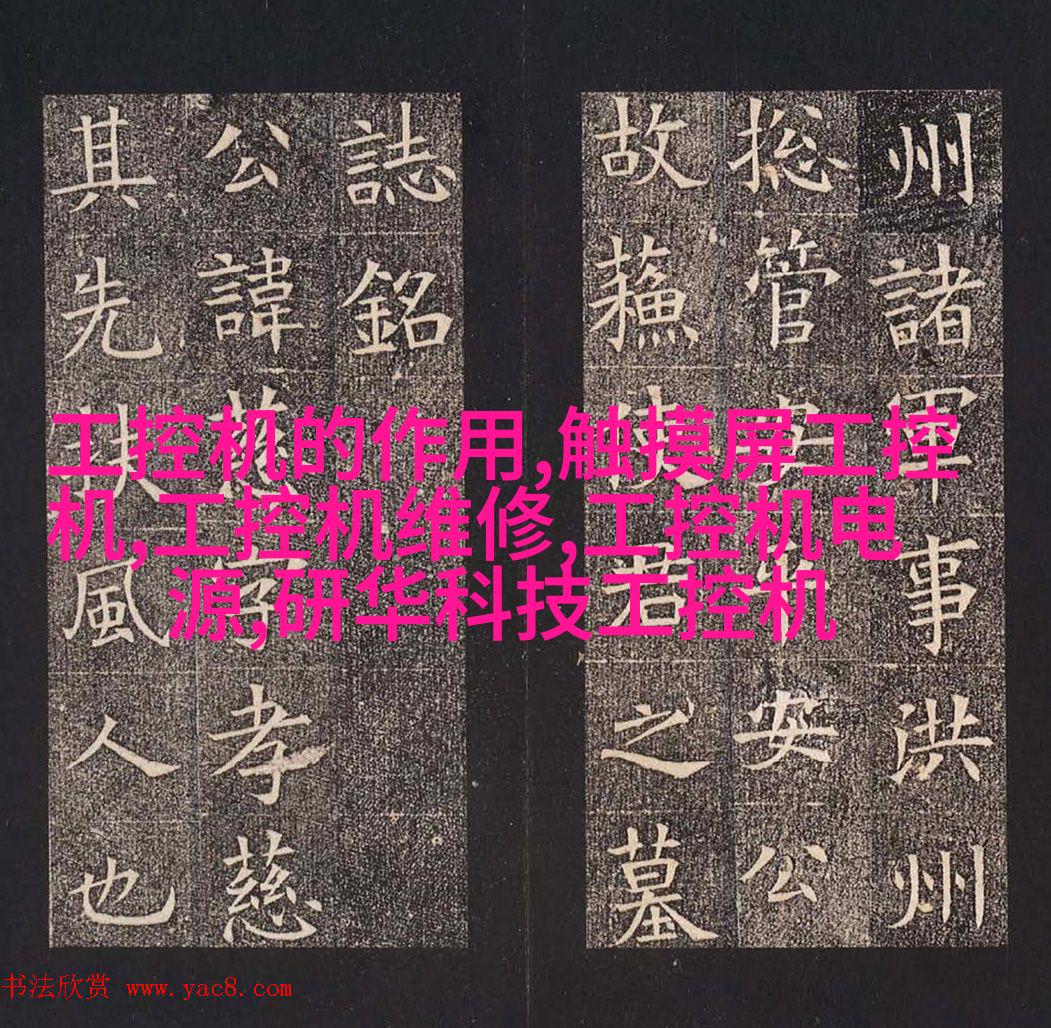 州諸軍事洪州
捴管安公
故蘓使君之墓
誌銘
公諱慈字孝慈
其先扶風人也
工控机的作用,触摸屏工控
机,工控机维修,工控机电
源,研华科技工控机
书法欣赏 www.yac8.com